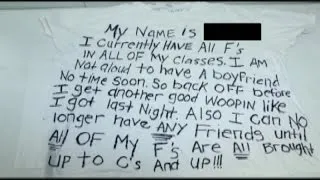 My NAME is
I currently HAVE All F's
IN ALL OF My CLASSES. I AM
Not aloud to HAVE A boyfriend
No time soon. So back OFF before
I get another good WOOPIN like
I got last Night. Also I can NO
longer have ANY Friends until
All OF My F's Are All Brought
UP to C's And UP!!!